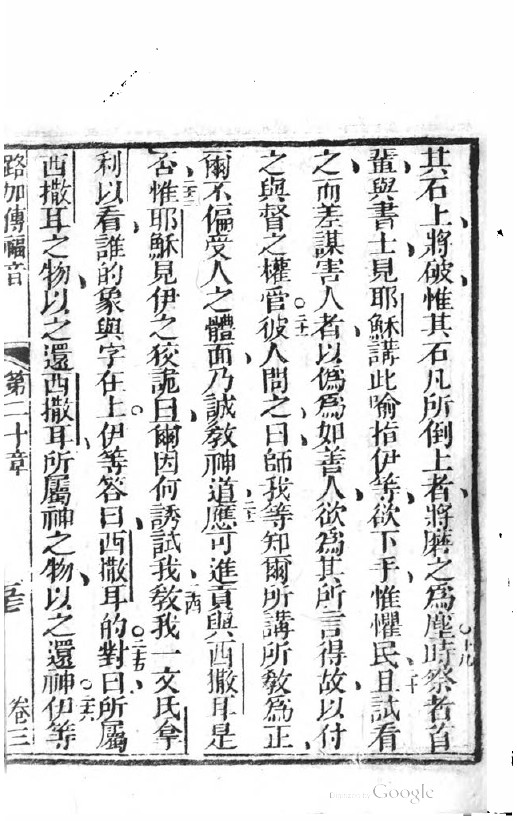 其石上將破惟其石凡所倒上者將磨之為塵十九時祭者首
輩與書士見耶穌講此喻指伊等欲下手惟懼民二十且試看
之而差謀害人者以偽為如善人欲為其所言得故以付
之與督之權管二十一彼人問之曰師我等知爾所講所教為正
爾不偏受人之體面乃誠教神道二十二應可進貢與西撒耳是
否二十三惟耶穌見伊之狡詭曰爾因何誘試我二十四教我一文氏拿
利以看誰的象與字在上伊等答曰西撒耳的二十五對曰所屬
西撒耳之物以之還西撒耳所屬神之物以之還神二十六伊等
路加傳福音 第二十章 卷三
Digitized by Google